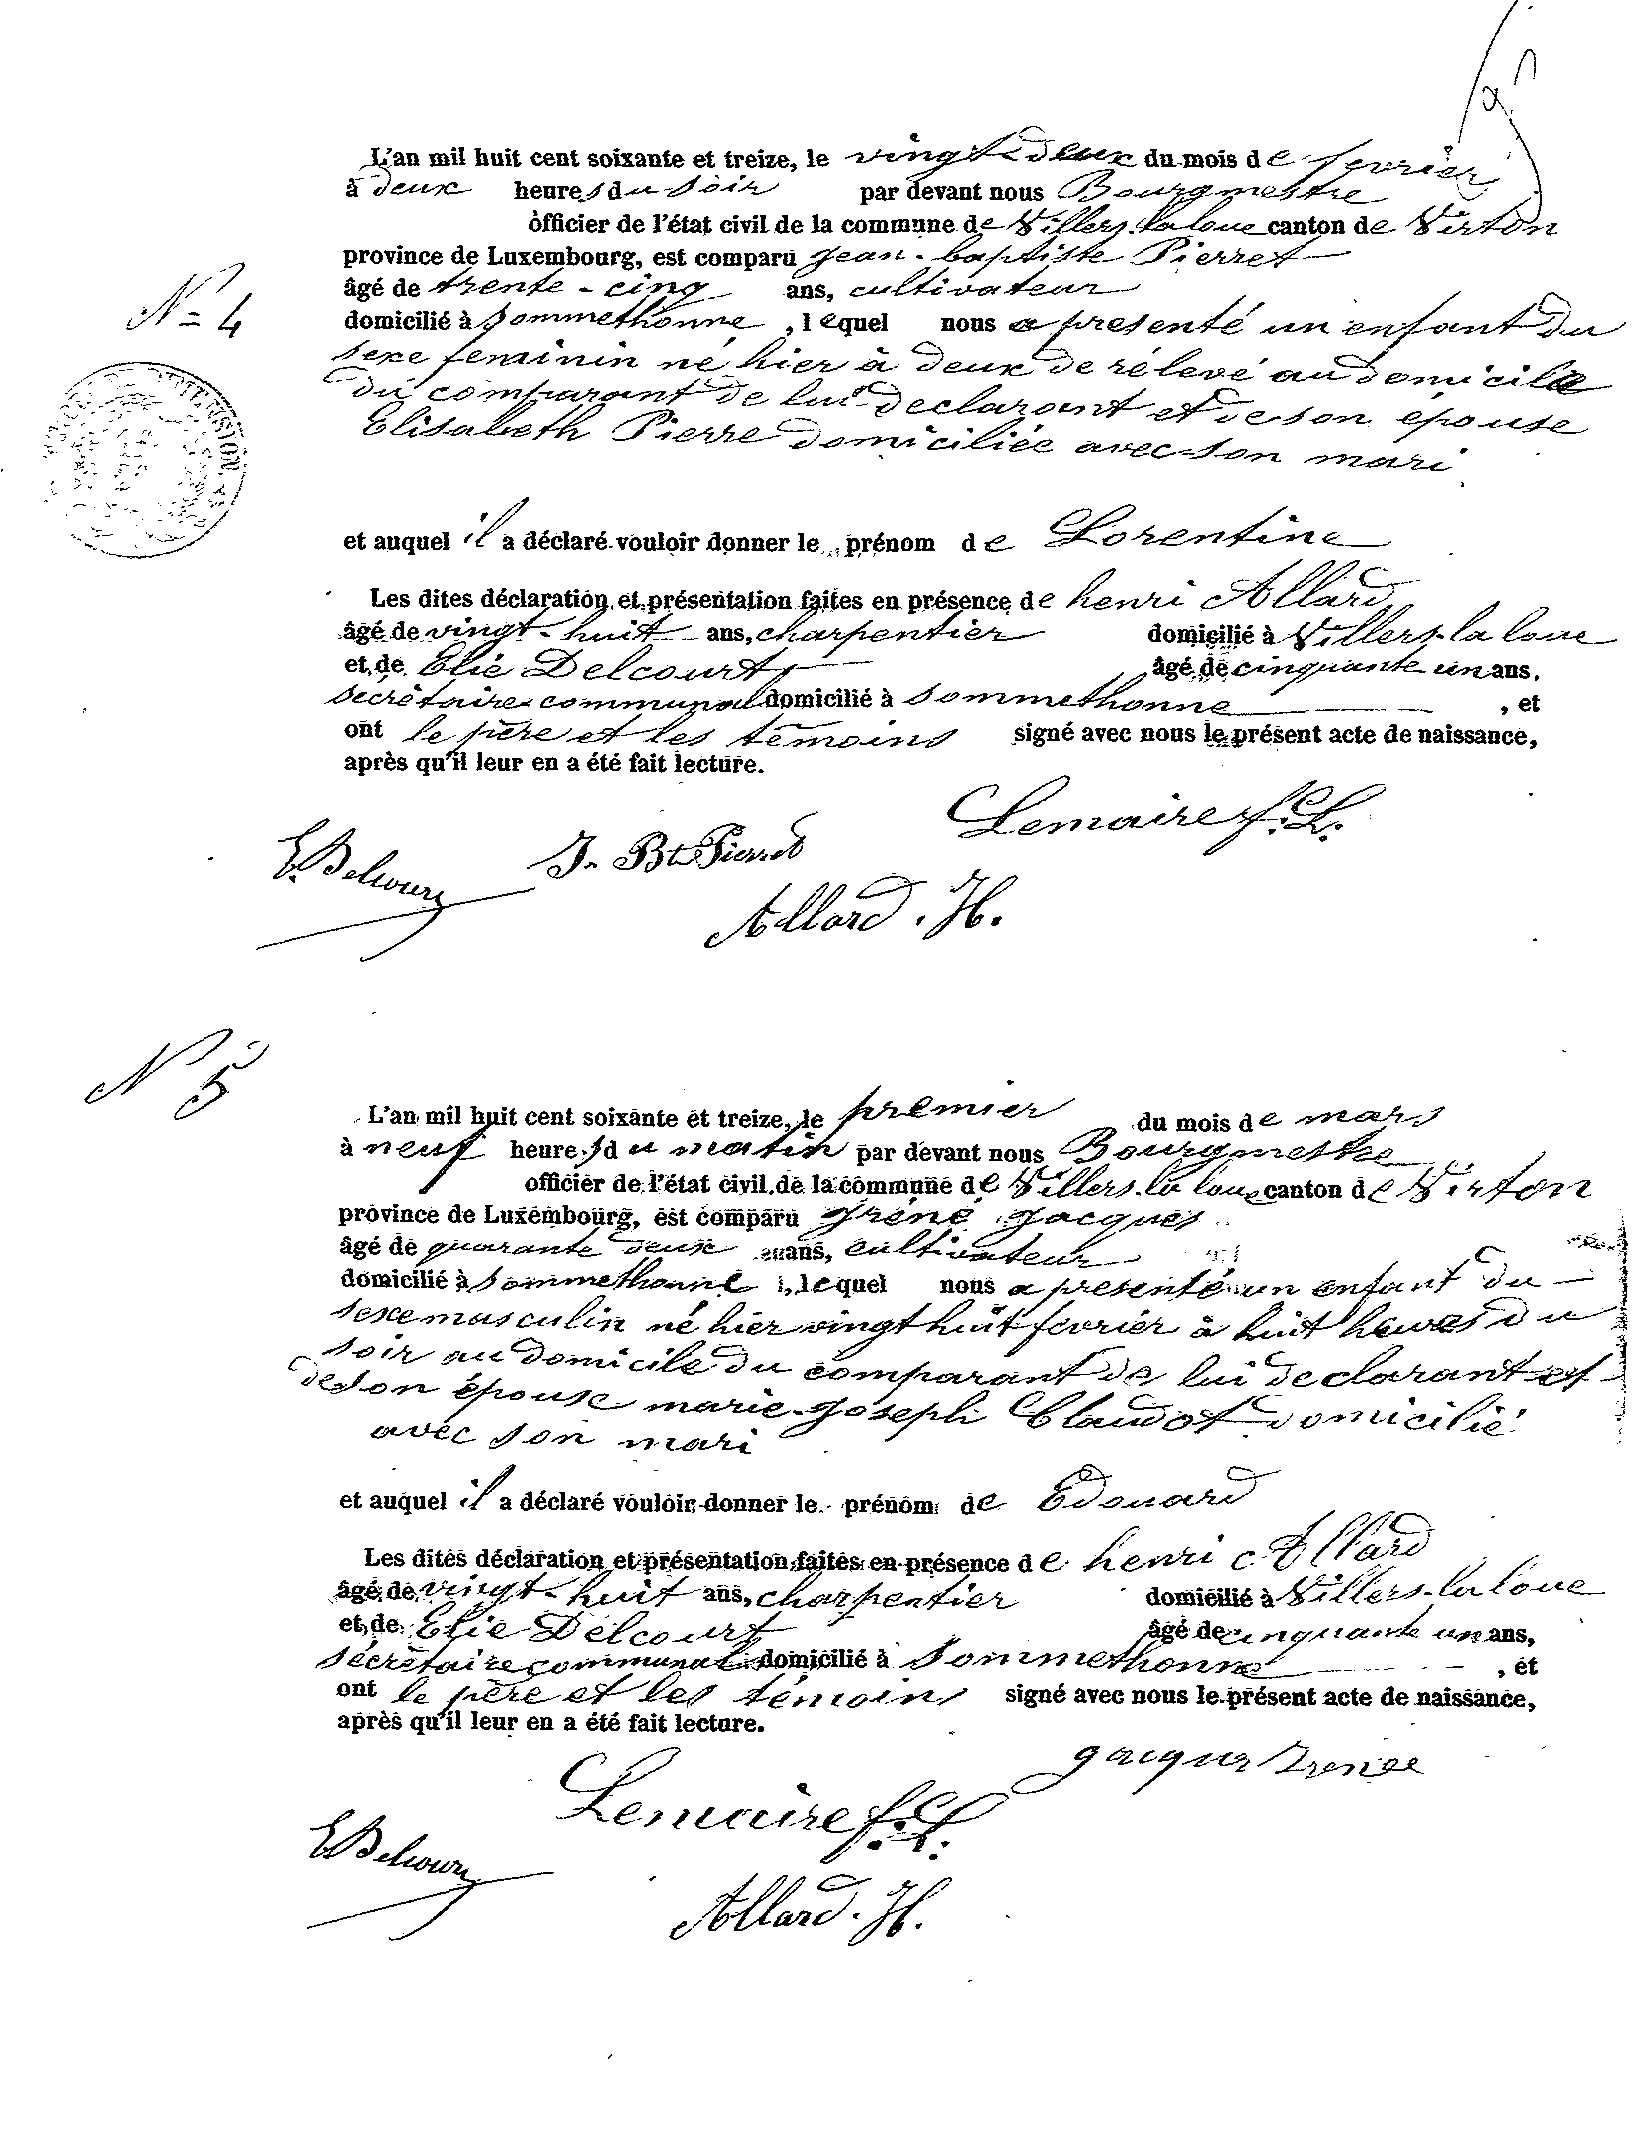 L'an mil huit cent soixante et treize, le vingt deux du mois de fevrier
à deux heures du soir par devant nous Bourgmestre
officier de l'état civil de la commune de Villers-la loue canton de Virton
province de Luxembourg, est comparu Jean-baptiste Pierret
N= 4
âgé de trente-cinq ans, cultivateur
domicilié à Sommethonne, lequel nous a presenté un enfant du
sexe feminin né hier à deux de rélevé au domicile
du comparant de lui declarant et de son épouse
Elisabeth Pierre domiciliée avec son mari
et auquel il a déclaré vouloir donner le prénom de Lorentine
Les dites déclaration et présentation faites en présence de henri Allard
âgé de vingt-huit ans, charpentier domicilié à Villers-la loue
et de Elie Delcourt âgé de cinquante un ans,
secrétaire communal domicilié à Sommethonne , et
ont le père et les témoins signé avec nous le présent acte de naissance,
après qu'il leur en a été fait lecture.
Lemaire f. L.
E. Delcourt J. Bte Pierret
Allard. H.
N 5
L'an mil huit cent soixante et treize, le premier du mois de mars
à neuf heures du matin par devant nous Bourgmestre
officier de l'état civil de la commune de Villers-la loue canton de Virton
province de Luxembourg, est comparu Iréné Jacques
âgé de quarante deux ans, cultivateur
domicilié à Sommethonne, lequel nous a presenté un enfant du
sexe masculin né hier vingt huit fevrier à huit heures du
soir au domicile du comparant de lui declarant et
de son épouse marie-Joseph Claudot domicilié
avec son mari
et auquel il a déclaré vouloir donner le prénom de Edouard
Les dites déclaration et présentation faites en présence de henri Allard
âgé de vingt-huit ans, charpentier domicilié à Villers-la loue
et de Elie Delcourt âgé de cinquante un ans,
sécrétaire communal domicilié à Sommethonne , et
ont le père et les témoins signé avec nous le présent acte de naissance,
après qu'il leur en a été fait lecture.
Jacques Irenée
Lemaire f. L.
E Delcourt
Allard. H.